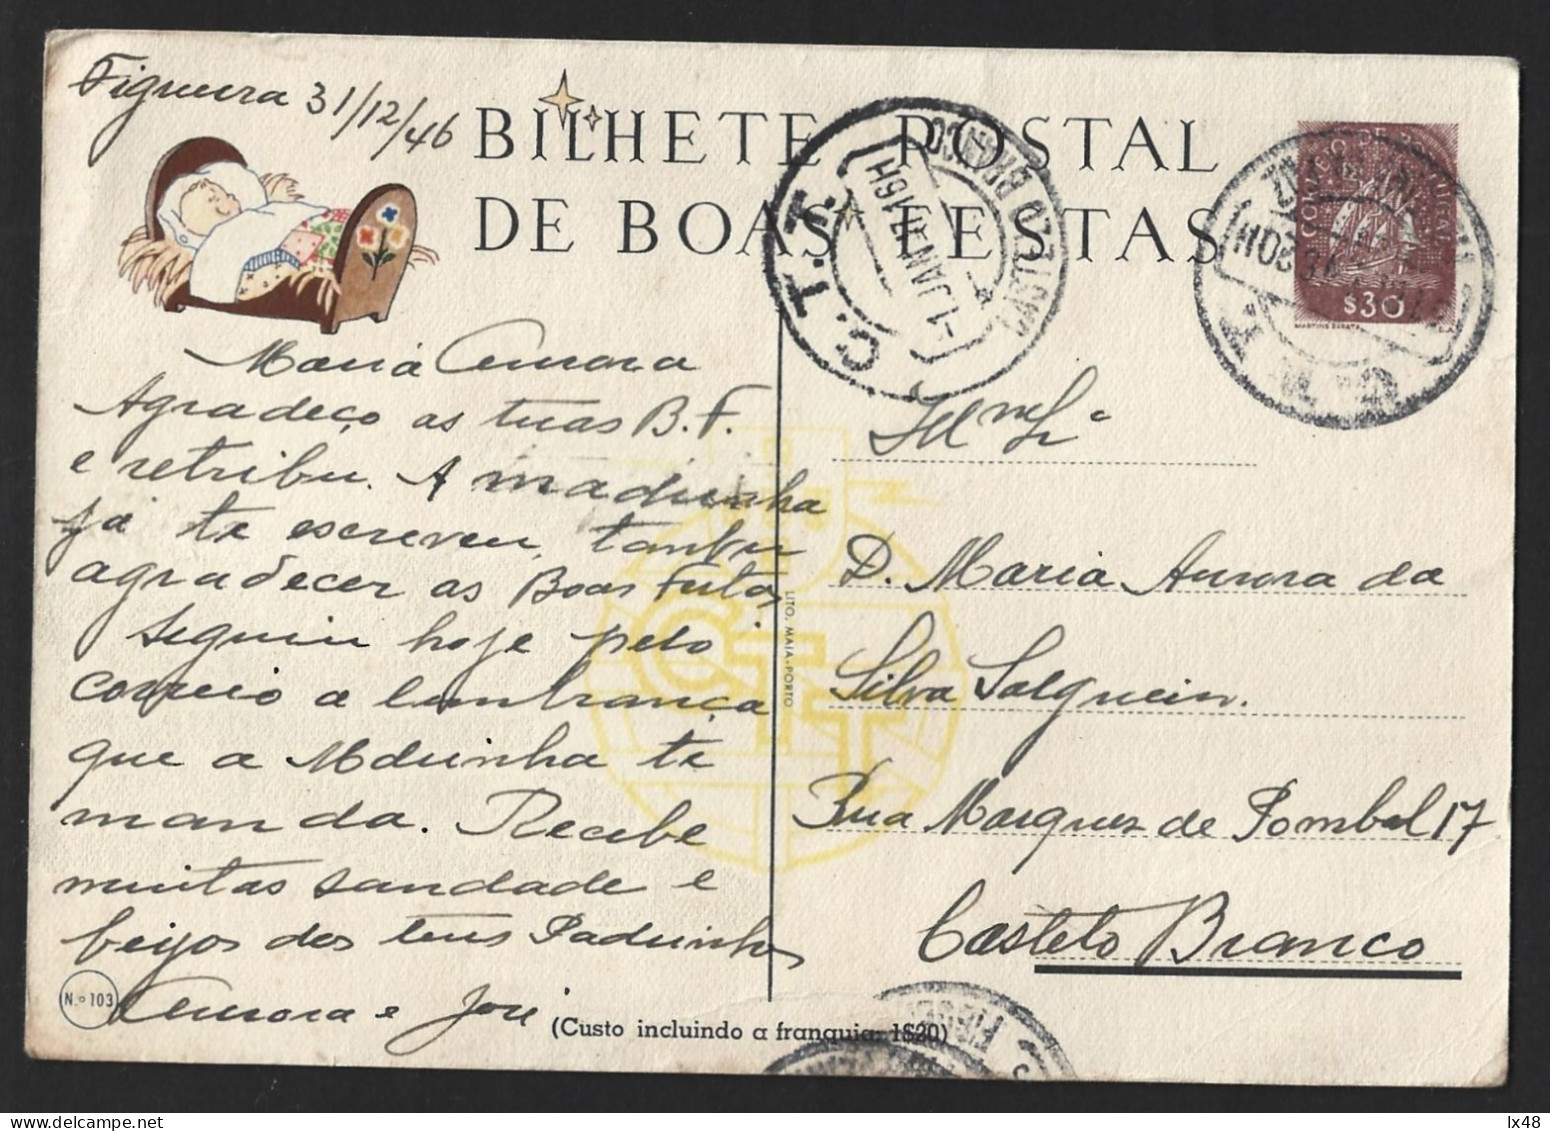 Figueira 31/12/46
BILHETE POSTAL
DE BOAS FESTAS
CORREIO DE PORTUGAL
$30
MARTINS BARATA
C.T.T.
CASTELO BRANCO
-1 JAN 47 16H
Maria Aurora
Agradeço as tuas B. F.
e retribu. A madrinha
já te escreveu, tambem
agradecer as Boas Festas
Seguiu hoje pelo
correio a lembrança
que a Mdrinha te
manda. Recebe
muitas saudade e
beijos dos teus Padrinhos
Aurora e José
Ilma
D. Maria Aurora da
Silva Salgueiro.
Rua Marquez de Pombal 17
Castelo Branco
LITO. MAIA-PORTO
CTT
N.º 103
(Custo incluindo a franquia: 1$20)